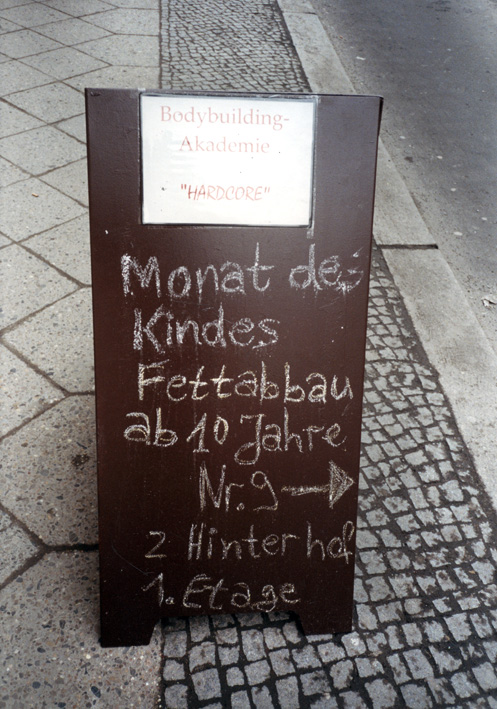 Bodybuilding-
Akademie
"HARDCORE"
Monat des
Kindes
Fettabbau
ab 10 Jahre
Nr. 9 →
2 Hinterhof
1. Etage